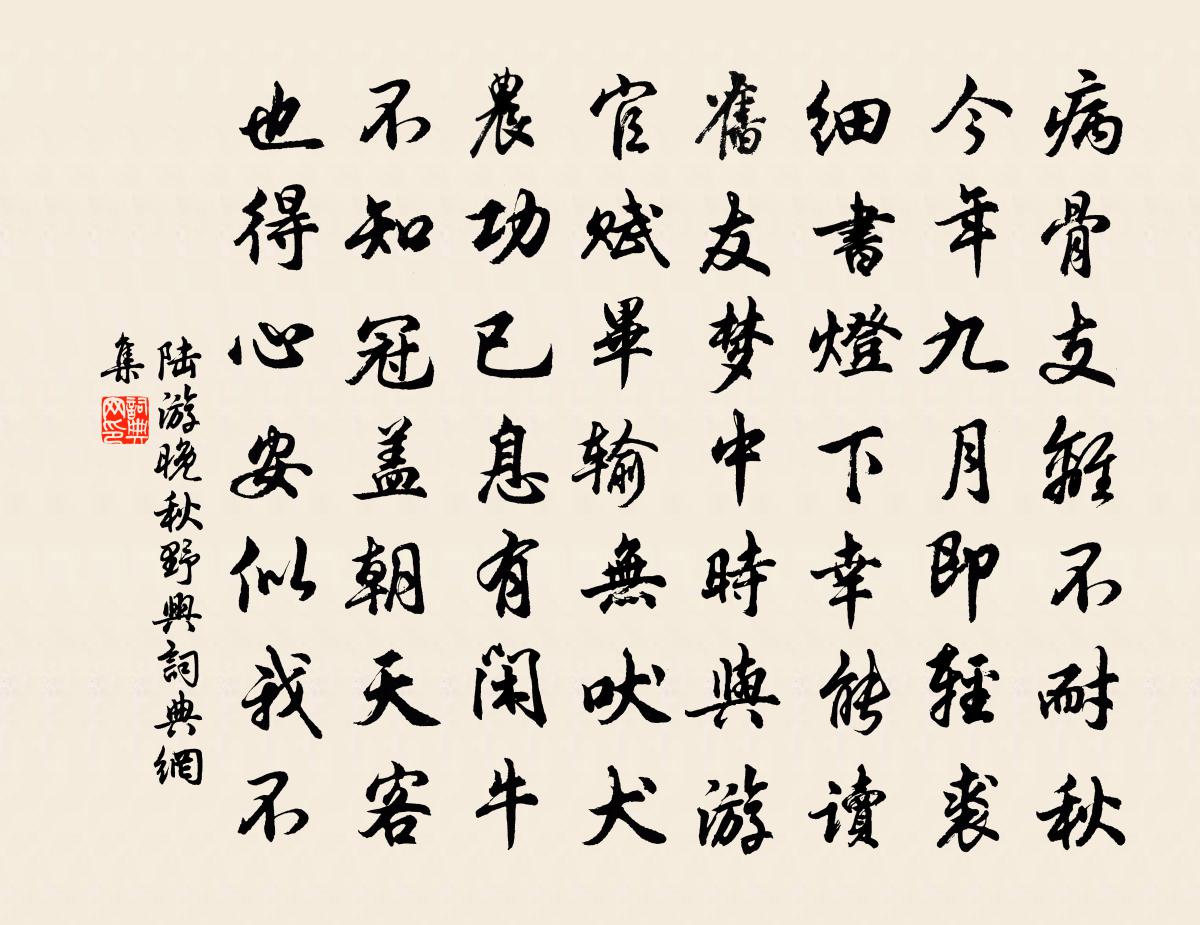 病骨支離不耐秋
今年九月即輕裘
細書燈下幸能讀
舊友梦中時與游
官賦畢輸無吠犬
農功已息有閑牛
不知冠盖朝天客
也得心安似我不
陆游晚秋野興詞典網
集
詞典
网印